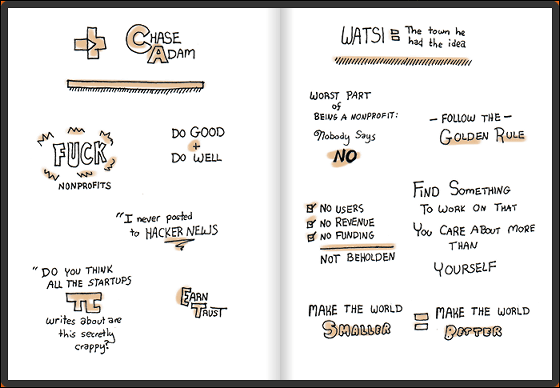 CHASE
ADAM
FUCK
NONPROFITS
DO GOOD
+
DO WELL
"I never posted
to HACKER NEWS
"DO YOU THINK
ALL THE STARTUPS
TC
writes about are
this secretly
crappy?
EARN
TRUST
WATSI = The town he
had the idea
WORST PART
of
BEING A NONPROFIT:
Nobody Says
NO
- FOLLOW THE -
GOLDEN RULE
NO USERS
NO REVENUE
NO FUNDING
NOT BEHOLDEN
FIND SOMETHING
TO WORK ON THAT
YOU CARE ABOUT MORE
THAN
YOURSELF
MAKE THE WORLD
SMALLER
=
MAKE THE WORLD
BETTER